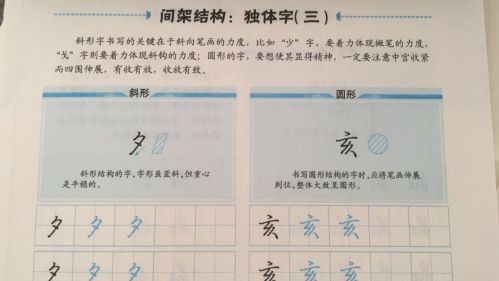 间架结构：独体字(三)
斜形字书写的关键在于斜向笔画的力度，比如“少”字，要着力体现撇笔的力度，
“戈”字则要着力体现斜钩的力度；圆形的字，要想使其显得精神，一定要注意中宫收紧
而四围伸展，有收有放，收放有致。
斜形
圆形
夕
亥
斜形结构的字，字形虽歪斜，但重心
是平稳的。
书写圆形结构的字时，应将笔画伸展
到位，整体大致呈圆形。
夕 夕 夕
亥 亥 亥
夕 夕 夕
亥 亥 亥